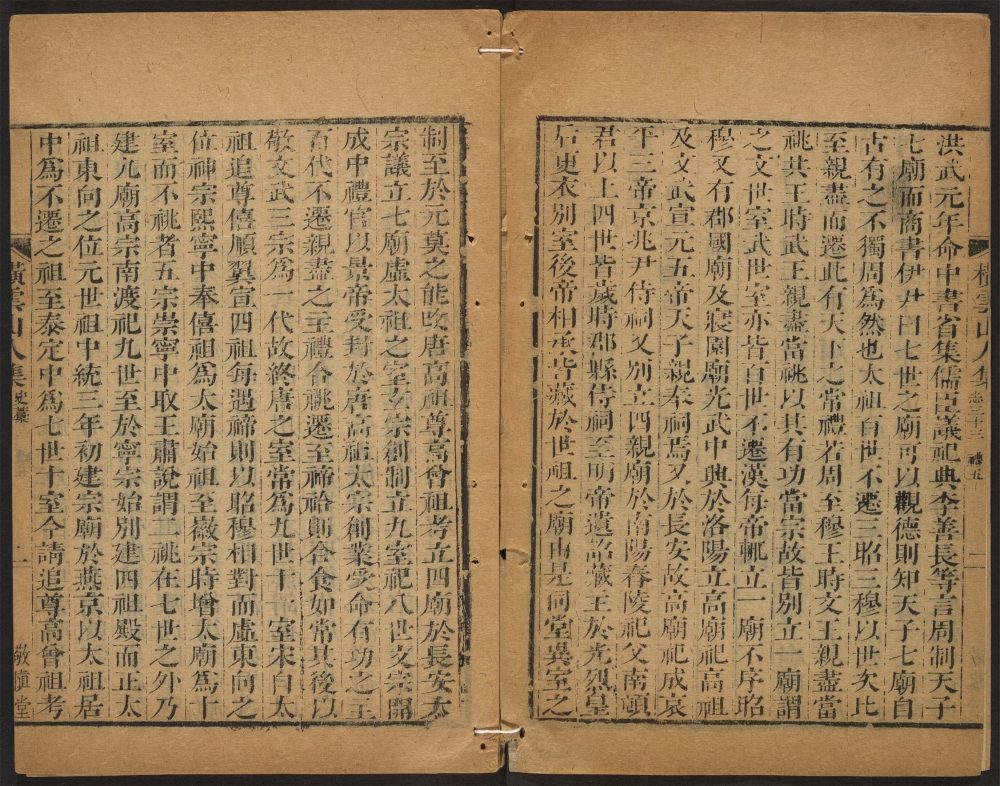 橫雲山人集 志三十三 禮五
洪武元年命中書省集儒臣議祀典李善長等言周制天子
七廟而商書伊尹曰七世之廟可以觀德則知天子七廟自
古有之不獨周爲然也太祖百世不遷三昭三穆以世次比
至親盡而遷此有天下之常禮若周至穆王時文王親盡當
祧共王時武王親盡當祧以其有功當宗故皆別立一廟謂
之文世室武世室亦皆百世不遷漢每帝輒立一廟不序昭
穆又有郡國廟及寢園廟光武中興於洛陽立高廟祀高祖
及文武宣元五帝天子親奉祠焉又於長安故高廟祀成哀
平三帝京兆尹侍祠又別立四親廟於南陽舂陵祀父南頓
君以上四世皆歲時郡縣侍祠至明帝遺詔藏主於光烈皇
后更衣別室後帝相承皆藏於世祖之廟由是同堂異室之
制至於元莫之能改唐高祖尊高曾祖考立四廟於長安太
宗議立七廟虛太祖之室玄宗創制立九室祀八世文宗開
成中禮官以景帝受封於唐高祖太宗創業受命有功之主
百代不遷親盡之主禮合祧遷至禘祫則合食如常其後以
敬文武三宗爲一代故終唐之室常爲九世十一室宋自太
祖追尊僖順翼宣四祖每遇禘則以昭穆相對而虛東向之
位神宗熙寧中奉僖祖爲太廟始祖至徽宗時增太廟爲十
室而不祧者五宗崇寧中取王肅說謂二祧在七世之外乃
建九廟高宗南渡祀九世至於寧宗始別建四祖殿而正太
祖東向之位元世祖中統三年初建宗廟於燕京以太祖居
中爲不遷之祖至泰定中爲七世十室今請追尊高曾祖考
橫雲山人集 史藁 一 敬慎堂